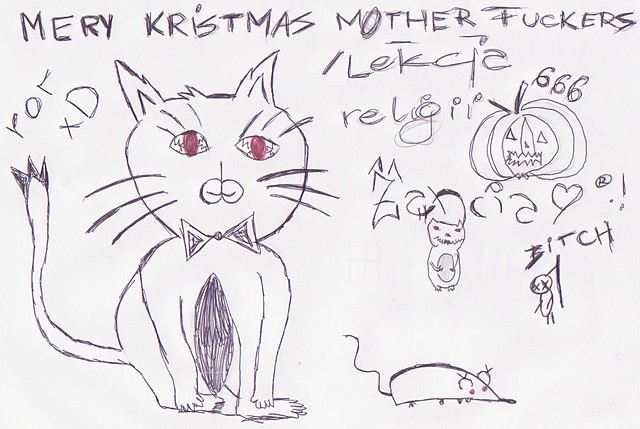 MERY KRISTMAS MOTHER FUCKERS
/Lekcja
religii
xD
666
BITCH